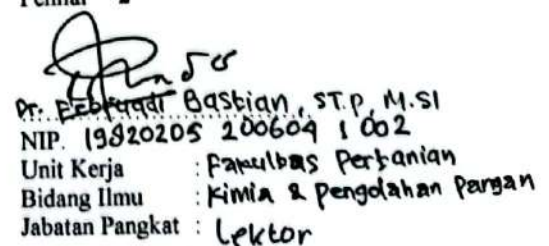 Penilai 2
Dr. Februadi Bastian, S.T.P, M.Si
NIP. 19820205 200604 1 002
Unit Kerja : Fakultas Pertanian
Bidang Ilmu : Kimia & Pengolahan Pangan
Jabatan Pangkat : Lektor